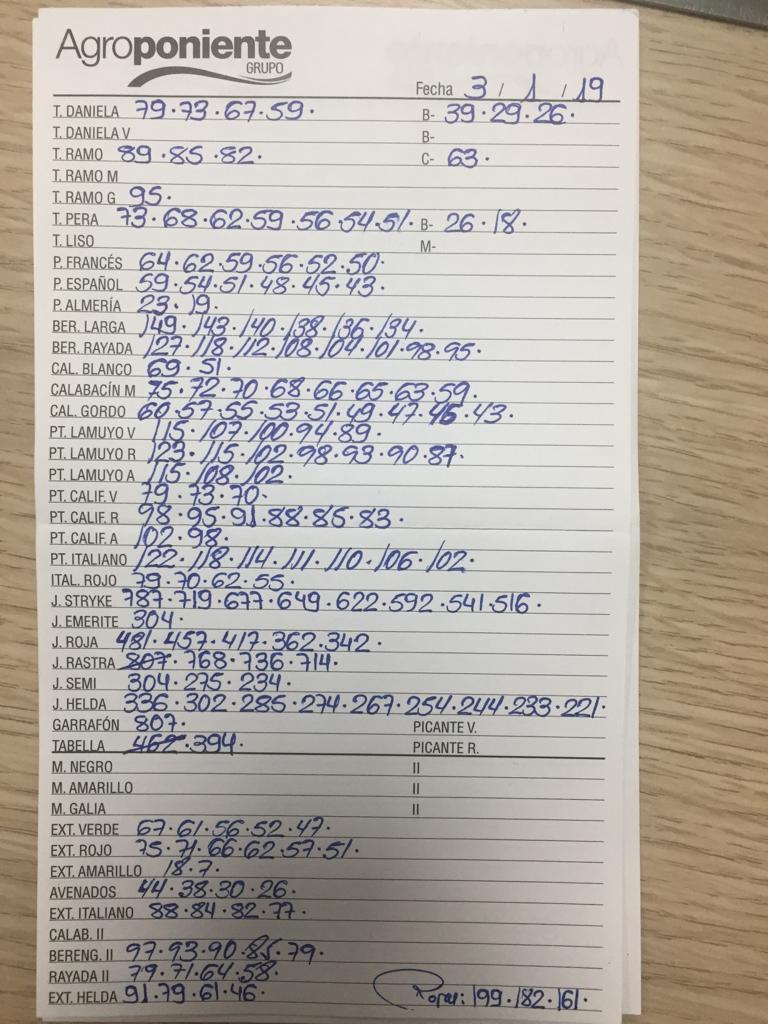 Agroponiente
GRUPO
Fecha 3 / 1 / 19
T. DANELA 79·73·67·59· B- 39·29·26·
T. DANIELA V B-
T. RAMO 89·85·82· C- 63·
T. RAMO M
T. RAMO G 95·
T. PERA 73·68·62·59·56·54·51· B- 26·18·
T. LISO M-
P. FRANCÉS 64·62·59·56·52·50·
P. ESPAÑOL 59·54·51·48·45·43·
P. ALMERÍA 23·19·
BER. LARGA 149·143·140·138·136·134·
BER. RAYADA 127·118·112·108·104·101·98·95·
CAL. BLANCO 69·51·
CALABACÍN M 75·72·70·68·66·65·63·59·
CAL. GORDO 60·57·55·53·51·49·47·45·43·
PT. LAMUYO V 115·107·100·94·89·
PT. LAMUYO R 123·115·102·98·93·90·87·
PT. LAMUYO A 115·108·102·
PT. CALIF. V 79·73·70·
PT. CALIF. R 98·95·91·88·85·83·
PT. CALIF. A 102·98·
PT. ITALIANO 122·118·114·111·110·106·102·
ITAL. ROJO 79·70·62·55·
J. STRYKE 787·719·677·649·622·592·541·516·
J. EMERITE 304·
J. ROJA 481·457·417·362·342·
J. RASTRA 807·768·736·714·
J. SEMI 304·275·234·
J. HELDA 336·302·285·274·267·254·244·233·221·
GARRAFÓN 807· PICANTE V.
TABELLA 462·394· PICANTE R.
M. NEGRO II
M. AMARILLO II
M. GALIA II
EXT. VERDE 67·61·56·52·47·
EXT. ROJO 75·71·66·62·57·51·
EXT. AMARILLO 18·7·
AVENADOS 44·38·30·26·
EXT. ITALIANO 88·84·82·77·
CALAB. II
BERENG. II 97·93·90·85·79·
RAYADA II 79·71·64·58·
EXT. HELDA 91·79·61·46· 199·182·161·